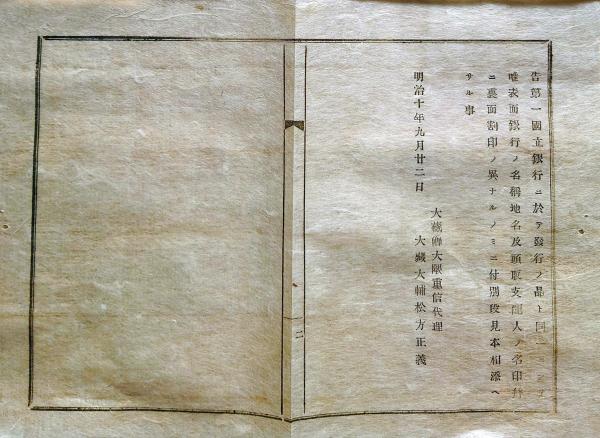 告第一國立銀行ニ於テ發行ノ品ト同一ニシテ
唯表面銀行ノ名稱地名及頭取支配人ノ名印幷
ニ裏面割印ノ異ナルノミニ付別段見本相添ヘ
サル事
明治十年九月廿二日
大藏卿大隈重信代理
大藏大輔松方正義
二